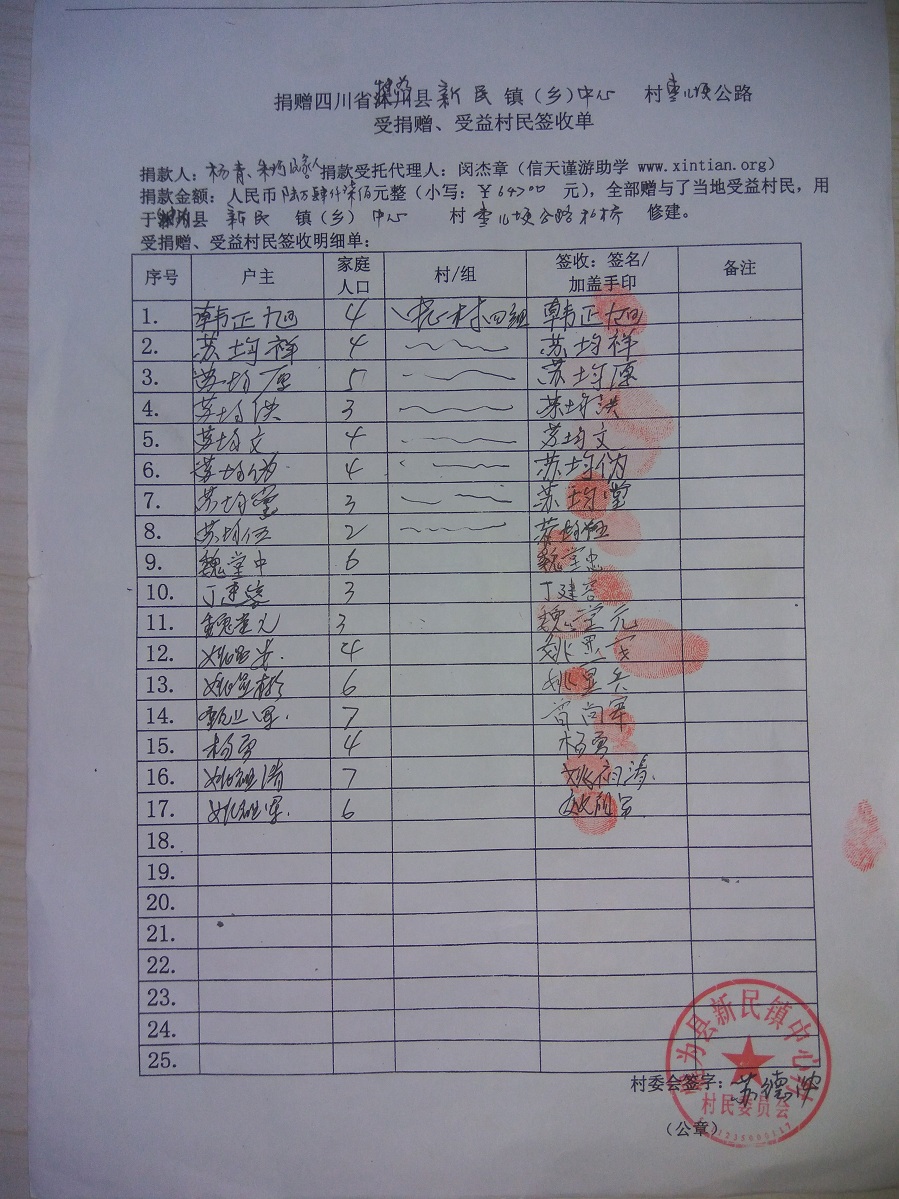 捐赠四川省犍为县新民镇（乡）中心 村枣儿顷公路
受捐赠、受益村民签收单
捐款人：杨青、家人捐款受托代理人：闵杰章（信天谨游助学 www.xintian.org）
捐款金额：人民币陆万肆仟柒佰元整（小写：￥64700 元），全部赠与了当地受益村民，用
于犍为县 新民 镇（乡）中心 村枣儿顷公路 修建。
受捐赠、受益村民签收明细单：
序号 户主 家庭人口 村/组 签收：签名/加盖手印 备注
1. 韩正旭 4 中心村四组 韩正旭
2. 苏均祥 4 苏均祥
3. 苏均原 5 苏均原
4. 苏均洪 3 苏均洪
5. 苏均文 4 苏均文
6. 苏均伪 4 苏均伪
7. 苏均堂 3 苏均堂
8. 苏均伍 2 苏均伍
9. 魏堂中 6 魏堂忠
10. 丁建 3 丁建
11. 魏堂元 3 魏堂元
12. 4
13. 6
14. 7
15. 杨勇 4 杨勇
16. 姚祖清 7
17. 姚祖军 6 姚祖军
18.
19.
20.
21.
22.
23.
24.
25.
村委会签字：苏德冲
（公章）
犍为县新民镇中心村
村民委员会